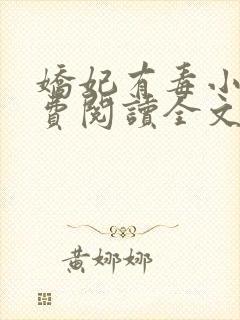 嬌妃有毒小
費閱讀全文
黃娜娜